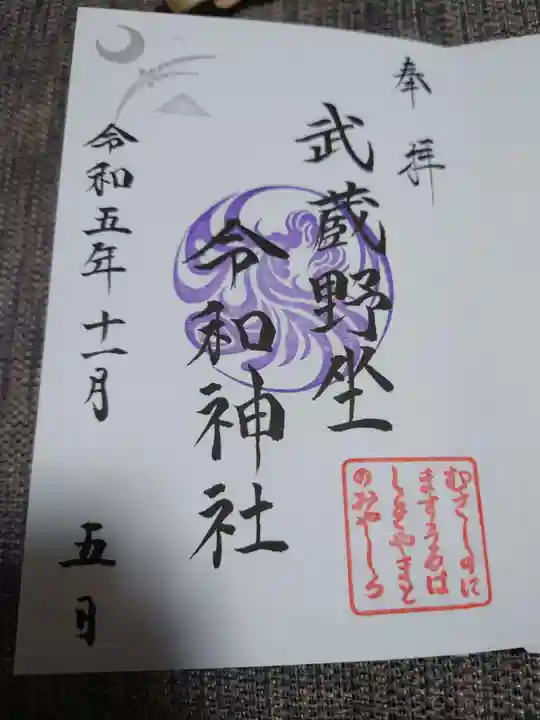 奉拝
武蔵野坐
令和神社
令和五年十一月五日
むさしのに
ますうるは
しきやまと
のみやしろ